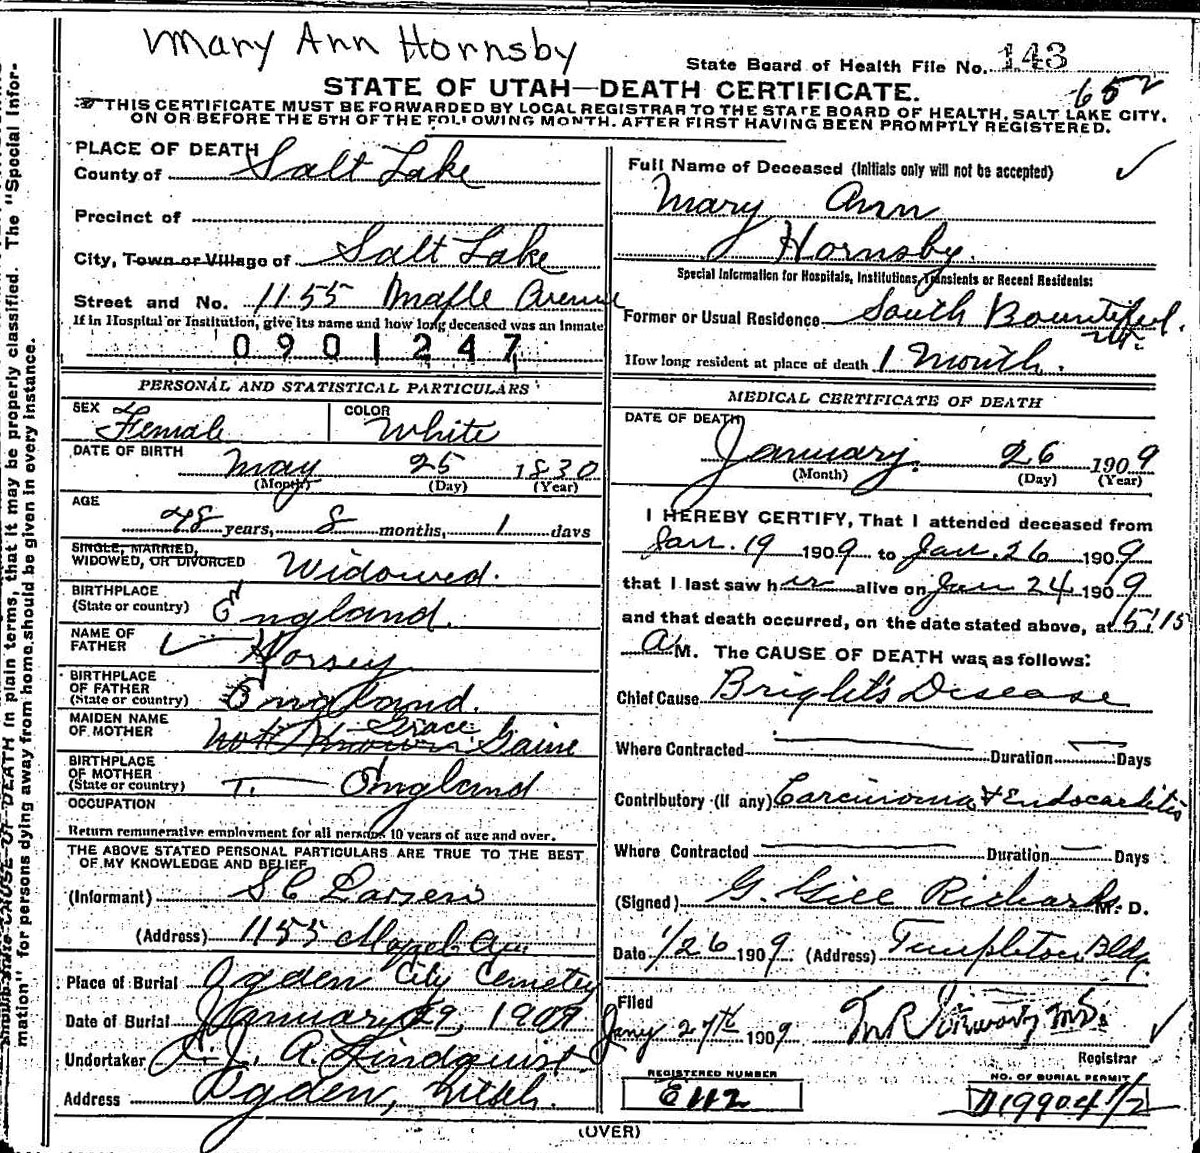 Mary Ann Hornsby
State Board of Health File No. 143
652
STATE OF UTAH—DEATH CERTIFICATE.
THIS CERTIFICATE MUST BE FORWARDED BY LOCAL REGISTRAR TO THE STATE BOARD OF HEALTH, SALT LAKE CITY,
ON OR BEFORE THE 5TH OF THE FOLLOWING MONTH. AFTER FIRST HAVING BEEN PROMPTLY REGISTERED.
PLACE OF DEATH
County of Salt Lake
Precinct of
City, Town or Village of Salt Lake
Street and No. 1155 Maple Avenue
If in Hospital or Institution, give its name and how long deceased was an inmate
0901247
PERSONAL AND STATISTICAL PARTICULARS
SEX Female
COLOR White
DATE OF BIRTH May 25 1830
(Month) (Day) (Year)
AGE
78 years, 8 months, 1 days
SINGLE, MARRIED,
WIDOWED, OR DIVORCED Widowed.
BIRTHPLACE
(State or country) England.
NAME OF
FATHER Horsey
BIRTHPLACE
OF FATHER
(State or country) England.
MAIDEN NAME
OF MOTHER Not Known Grace Gaine
BIRTHPLACE
OF MOTHER
(State or country) England
OCCUPATION
Return remunerative employment for all persons 10 years of age and over.
THE ABOVE STATED PERSONAL PARTICULARS ARE TRUE TO THE BEST
OF MY KNOWLEDGE AND BELIEF
(Informant) S C Larsen
(Address) 1155
Place of Burial Ogden City Cemetery
Date of Burial January 29, 1909
Undertaker A. Lindquist
Address Ogden, Utah.
Full Name of Deceased (Initials only will not be accepted)
Mary Ann
Hornsby.
Special Information for Hospitals, Institutions, Transients or Recent Residents:
Former or Usual Residence South Bountiful.
Ut.
How long resident at place of death 1 Month.
MEDICAL CERTIFICATE OF DEATH
DATE OF DEATH
January. 26 1909
(Month) (Day) (Year)
I HEREBY CERTIFY, That I attended deceased from
Jan. 19 1909 to Jan. 26 1909
that I last saw her alive on Jan 24 1909
and that death occurred, on the date stated above, at 5:15
A M. The CAUSE OF DEATH was as follows:
Chief Cause Bright's Disease
Where Contracted Duration Days
Contributory (if any) Carcinoma & Endocarditis
Where Contracted Duration Days
(Signed) G. Gill Richards M. D.
Date 1/26 1909 (Address) Templeton Bldg.
Filed
Jany 27th 1909
Registrar
REGISTERED NUMBER
E112
NO. OF BURIAL PERMIT
D19904 1/2
(OVER)
in plain terms, that it may be properly classified. The "Special Infor-
mation" for persons dying away from home should be given in every instance.